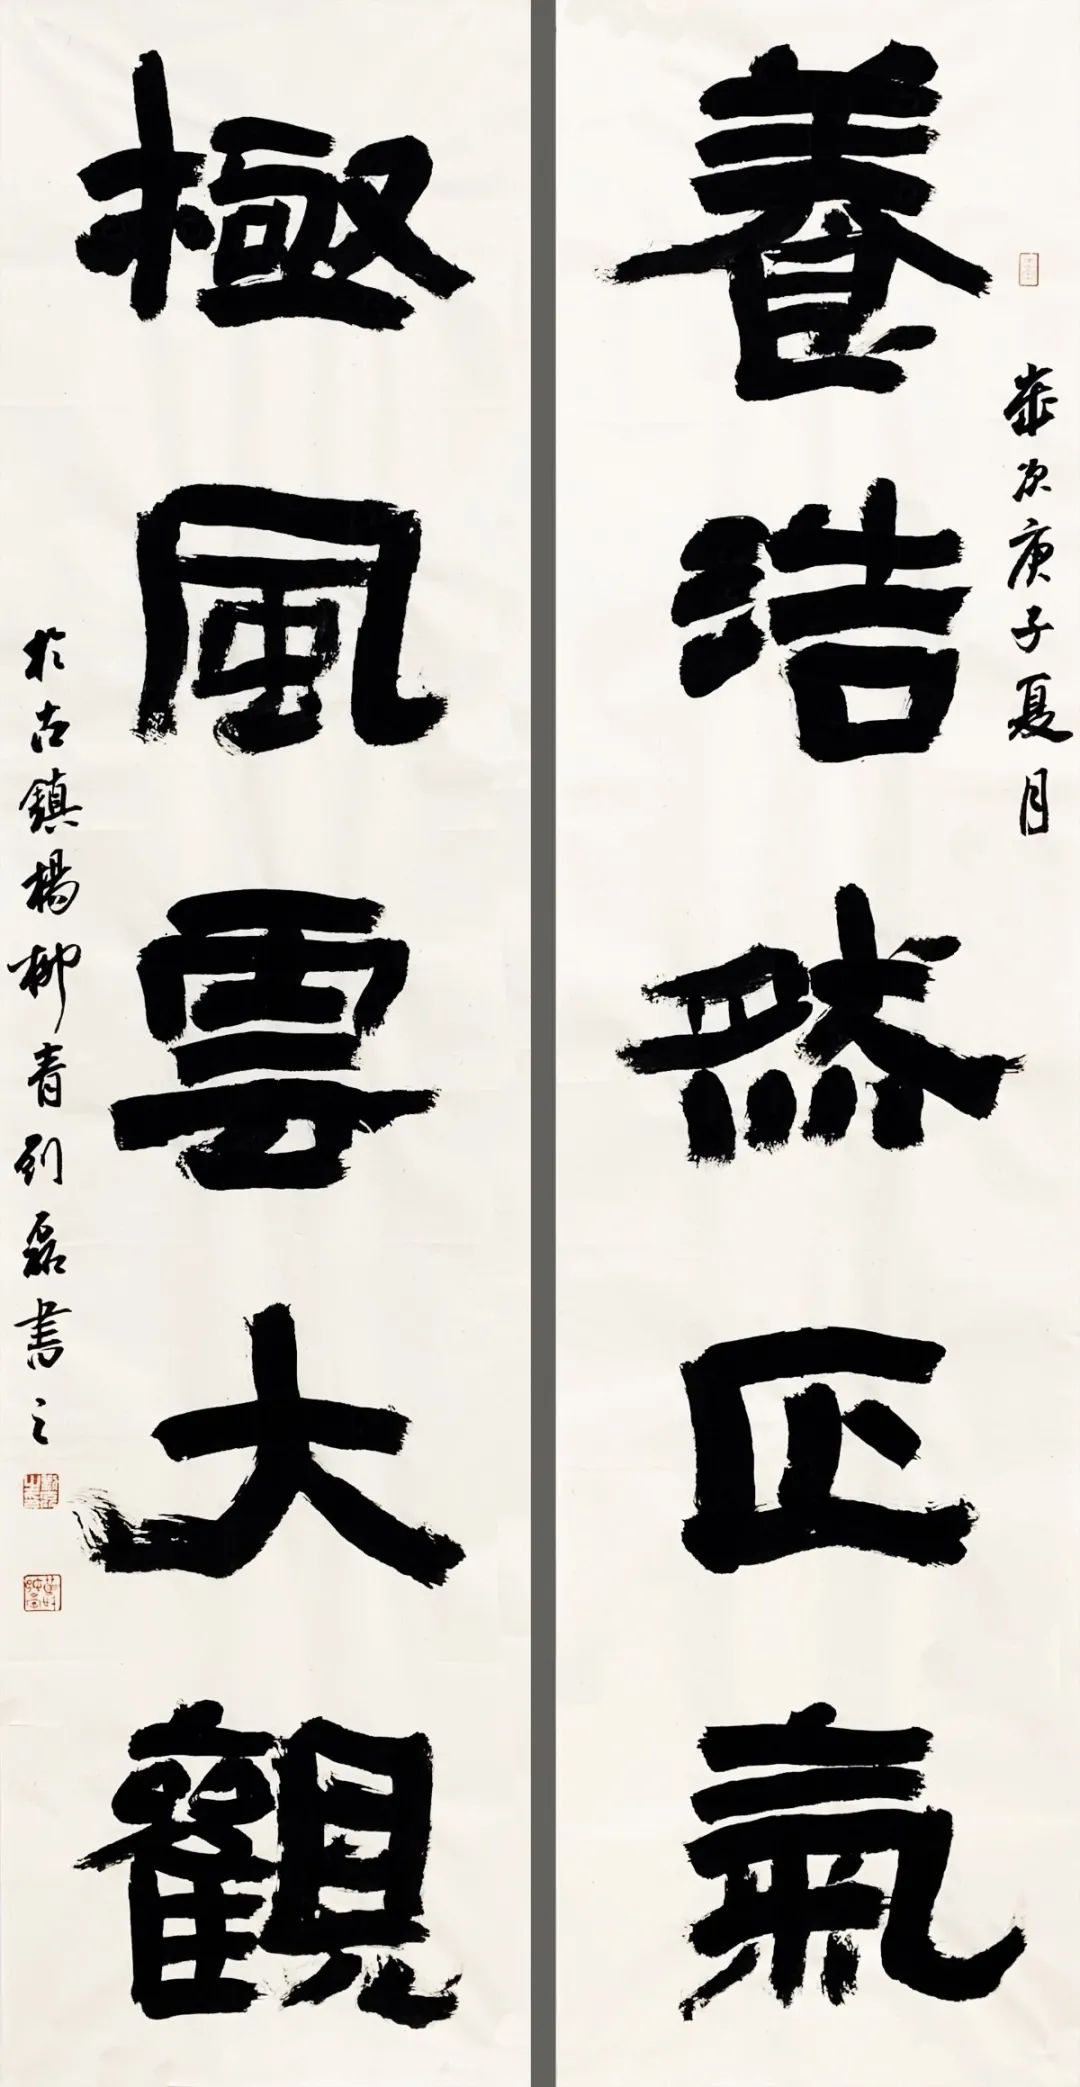 養浩然正氣
歲次庚子夏月
極風雲大觀
於古鎮楊柳青劉磊書之